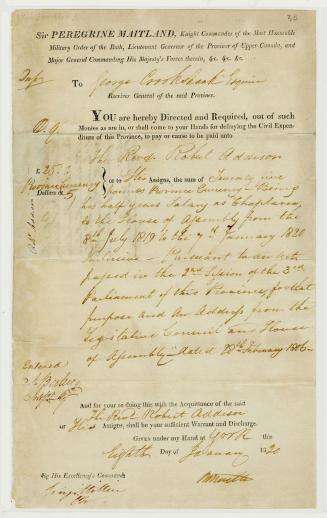 30
Sir PEREGRINE MAITLAND, Knight Commander of the Most Honorable
Military Order of the Bath, Lieutenant Governor of the Province of Upper-Canada, and
Major General Commanding His Majesty's Forces therein, &c. &c. &c.
To George Crookshank Esquire
Receiver General of the said Province.
YOU are hereby Directed and Required, out of such
Monies as are in, or shall come to your Hands for defraying the Civil Expendi-
ture of this Province, to pay or cause to be paid unto
The Revd. Robert Addison
£ 25
Province Currency
Dollars @ 5/
or to His Assigns, the sum of Twenty five
Pounds Province Currency - Being
his half years Salary as Chaplain
to the House of Assembly from the
8th July 1819 to the 7th January 1820
inclusive - Pursuant to an act
passed in the 2nd Session of the 3rd
Parliament of this Province, for that
purpose and An Address from the
Legislative Council and House
of Assembly - dated 28th February 1806 -
Entered
And for your so doing this with the Acquittance of the said
The Revd. Robert Addison
or His Assigns, shall be your sufficient Warrant and Discharge.
Given under my Hand at York this
Eighth Day of January 1820
By His Excellency's Command